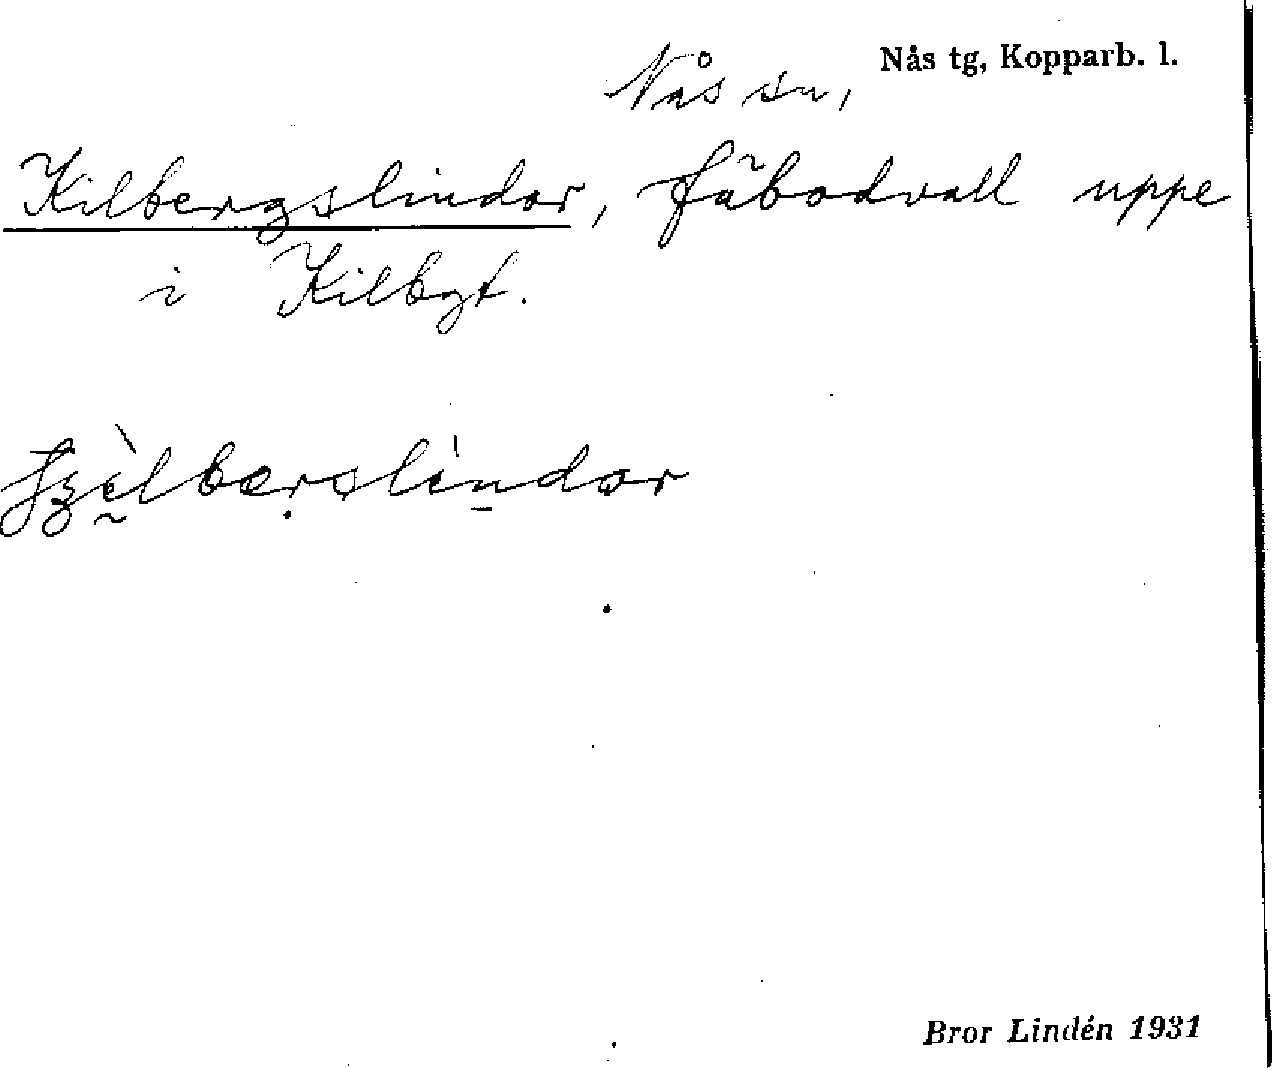 Nås tg, Kopparb. l.
Nås sn,
Kilbergslindor, fäbodvall uppe
i Kilbgt.
Bror Lindén 1931